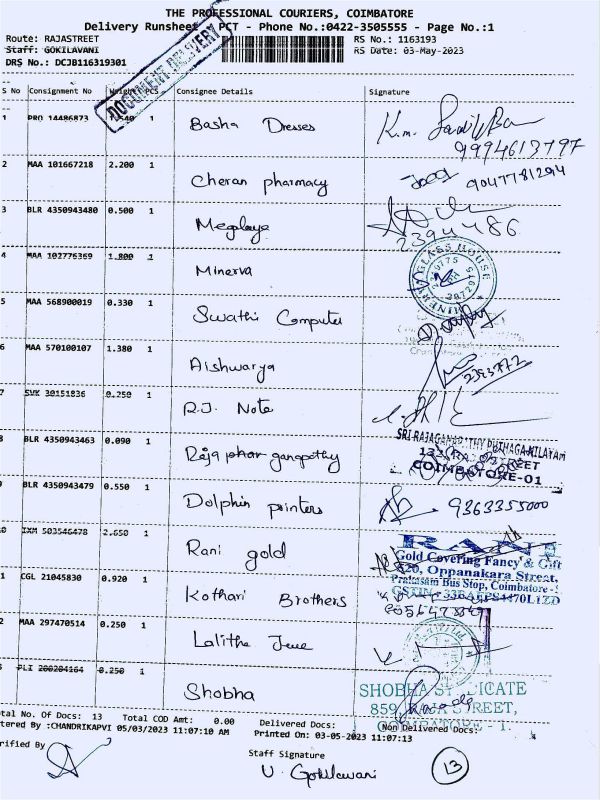 THE PROFESSIONAL COURIERS, COIMBATORE
Delivery Runsheet - PCT - Phone No.:0422-3505555 - Page No.:1
Route: RAJASTREET RS No.: 1163193
Staff: GOKILAVANI RS Date: 03-May-2023
DRS No.: DCJB116319301
DOCUMENT DELIVERY
S No Consignment No Weight PCS Consignee Details Signature
1 PRO 14486873 1 Basha Dresses K.m.
9994613797
2 MAA 101667218 2.200 1 Cheran pharmacy 9047781294
3 BLR 4350943480 0.500 1 Meglaya
2394486
4 MAA 102776369 1.800 1 Minerva MINERVA GLASS HOUSE
5 MAA 568900019 0.330 1 Swathi Computer
6 MAA 570100107 1.380 1 Aishwarya
7 SVK 30151836 0.250 1 R.J. Note
8 BLR 4350943463 0.090 1 Raja phar ganapathy SRI RAJAGANAPATHY PUTHAGA NILAYAM
COIMBATORE-01
9 BLR 4350943479 0.550 1 Dolphin printers 9363355000
0 IXM 503546478 2.650 1 Rani gold RANI
Gold Covering Fancy & Gift
820, Oppanakara Street,
Prakasam Bus Stop, Coimbatore-1
1 CGL 21045830 0.920 1 Kothari Brothers
2 MAA 297470514 0.250 1 Lalitha
3 PLI 200204164 0.250 1 Shobha SHOBHA SYNDICATE
859, RAJA STREET,
COIMBATORE - 1.
otal No. Of Docs: 13 Total COD Amt: 0.00 Delivered Docs: Non Delivered Docs:
tered By :CHANDRIKAPVI 05/03/2023 11:07:10 AM Printed On: 03-05-2023 11:07:13
rified By Staff Signature
U. Gokilavani 13